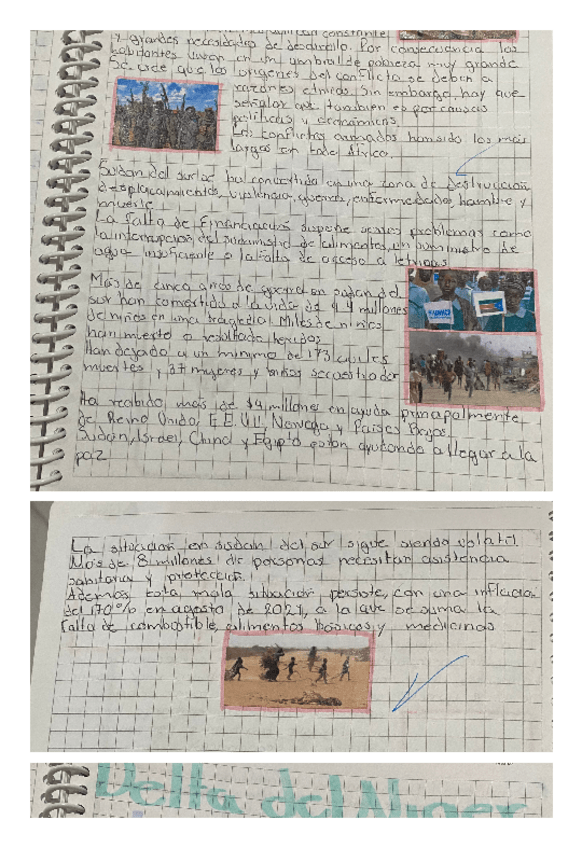 y grandes necesidades de desarrollo. Por consecuencia los
habitantes viven en un umbral de pobreza muy grande
Se cree que los orígenes del conflicto se deben a
razones etnicas. Sin embargo, hay que
señalar que tambien es por causas
politicas y economicas.
Los conflictos armados han sido los mas
largos en todo África.
Sudan del sur se ha convertido en una zona de destrucción
desplazamientos, violencia, guerra, enfermedades, hambre y
muerte.
La falta de financiación supone graves problemas como
la interrupción del suministro de alimentos, un suministro de
agua insuficiente o la falta de acceso a letrinas.
Más de cinca años de guerra en sudan del
sur han convertido a la vida de 4'4 millones
de niños en una tragedia! Miles de niños
han muerto o resultado heridos
Han dejado a un minimo de 173 civiles
muertes y 37 mujeres y niñas secuestradas
Ha recibido más de $4 millones en ayuda principalmente
de Reino Unido, E.E.U.U, Noruega y Paises Bajos.
Sudán, Israel, China y Egipto estan ayudando a llegar a la
paz
La situacion en sudan del sur sigue siendo volatil.
Más de 8 millones de personas necesitan asistencia
sanitaria y protección.
Ademas esta mala situacion persiste, con una inflacion
del 170% en agosto de 2021, a la que se suma la
falta de combustible, alimentos básicos y medicinas
unicef
Delta del Niger